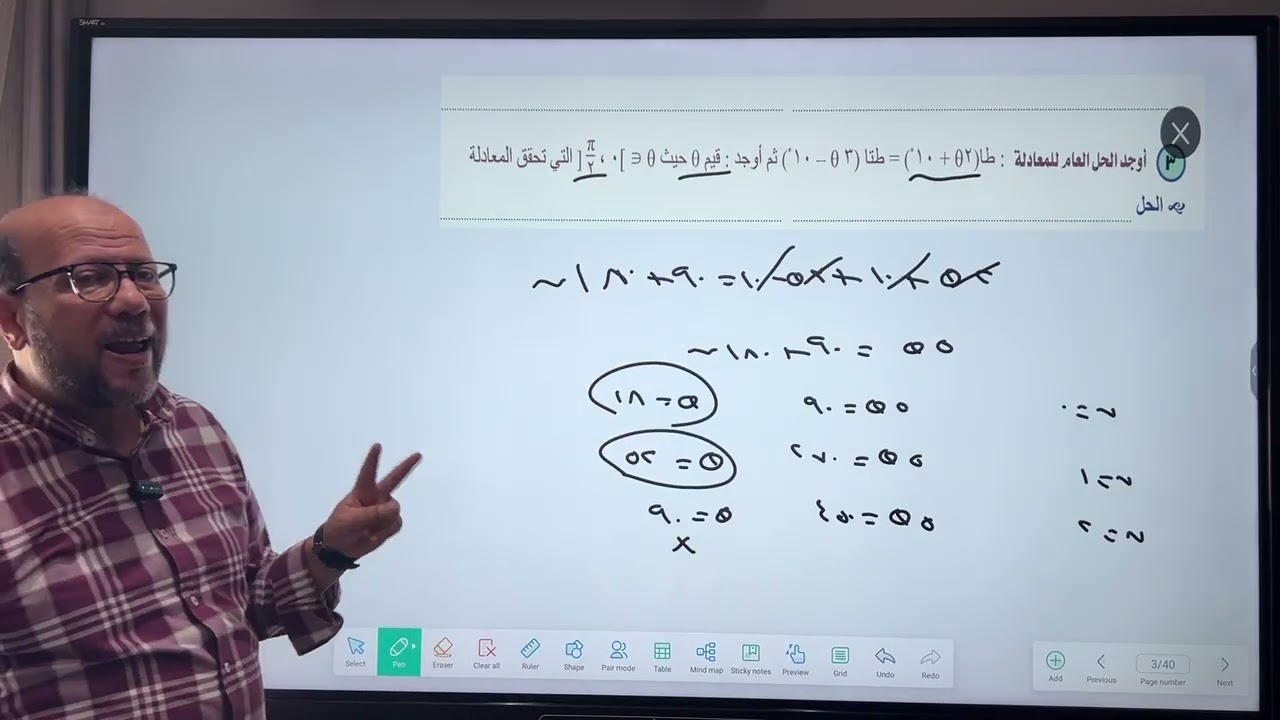 SMART
٣ أوجد الحل العام للمعادلة : طا(٢θ + ١٠°) = طتا (٣ θ – ١٠°) ثم أوجد : قيم θ حيث θ ∈ ]٠ ، π/٢[ التي تحقق المعادلة
الحل
٢θ + ١٠ + ٣θ - ١٠ = ٩٠ + ١٨٠ ن
٥θ = ٩٠ + ١٨٠ ن
ن = ٠ ٥θ = ٩٠ θ = ١٨
ن = ١ ٥θ = ٢٧٠ θ = ٥٤
ن = ٢ ٥θ = ٤٥٠ θ = ٩٠
×
Select Pen Eraser Clear all Ruler Shape Pair mode Table Mind map Sticky notes Preview Grid Undo Redo
Add Previous 3/40 Page number Next